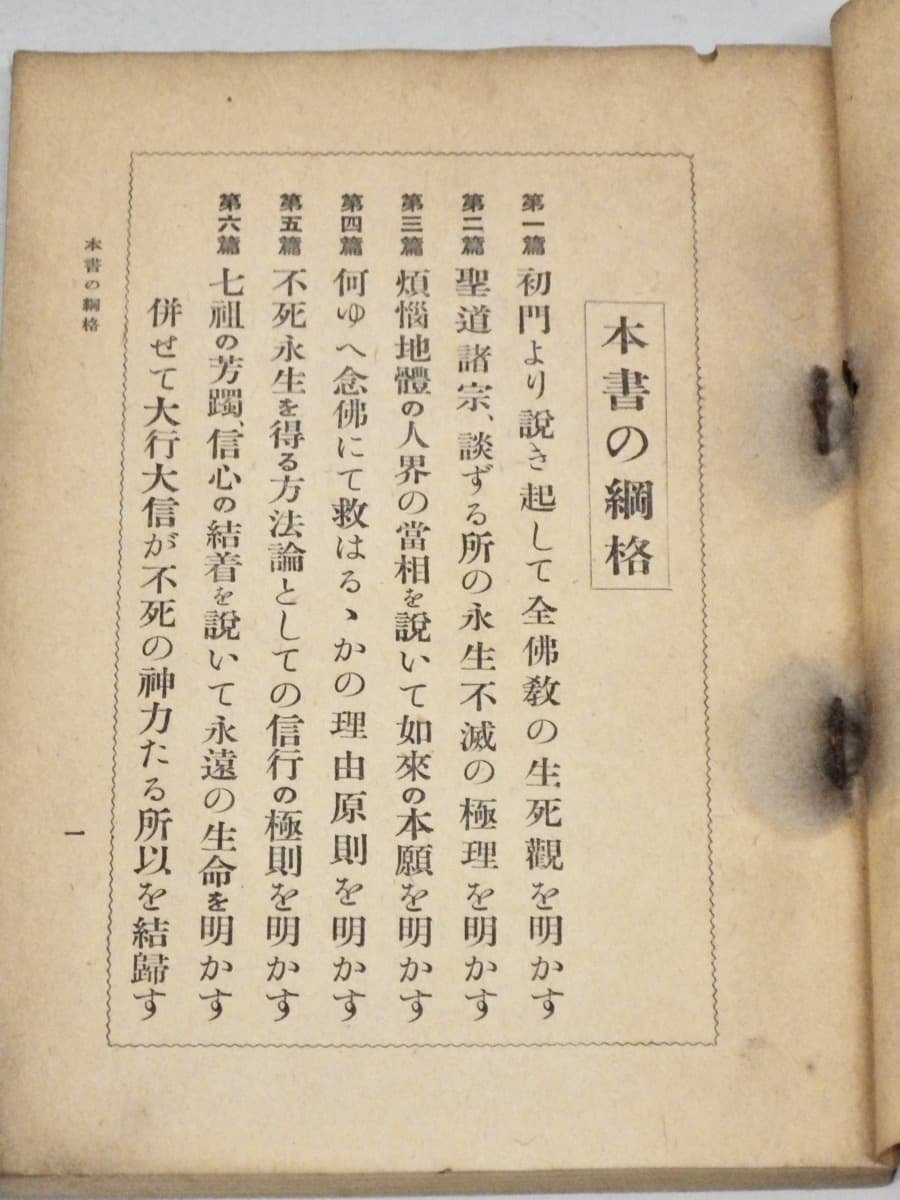 本書の綱格
第一篇 初門より説き起して全佛教の生死觀を明かす
第二篇 聖道諸宗、談ずる所の永生不滅の極理を明かす
第三篇 煩惱地體の人界の當相を説いて如來の本願を明かす
第四篇 何ゆへ念佛にて救はるゝかの理由原則を明かす
第五篇 不死永生を得る方法論としての信行の極則を明かす
第六篇 七祖の芳躅、信心の結着を説いて永遠の生命を明かす
併せて大行大信が不死の神力たる所以を結歸す
本書の綱格
一